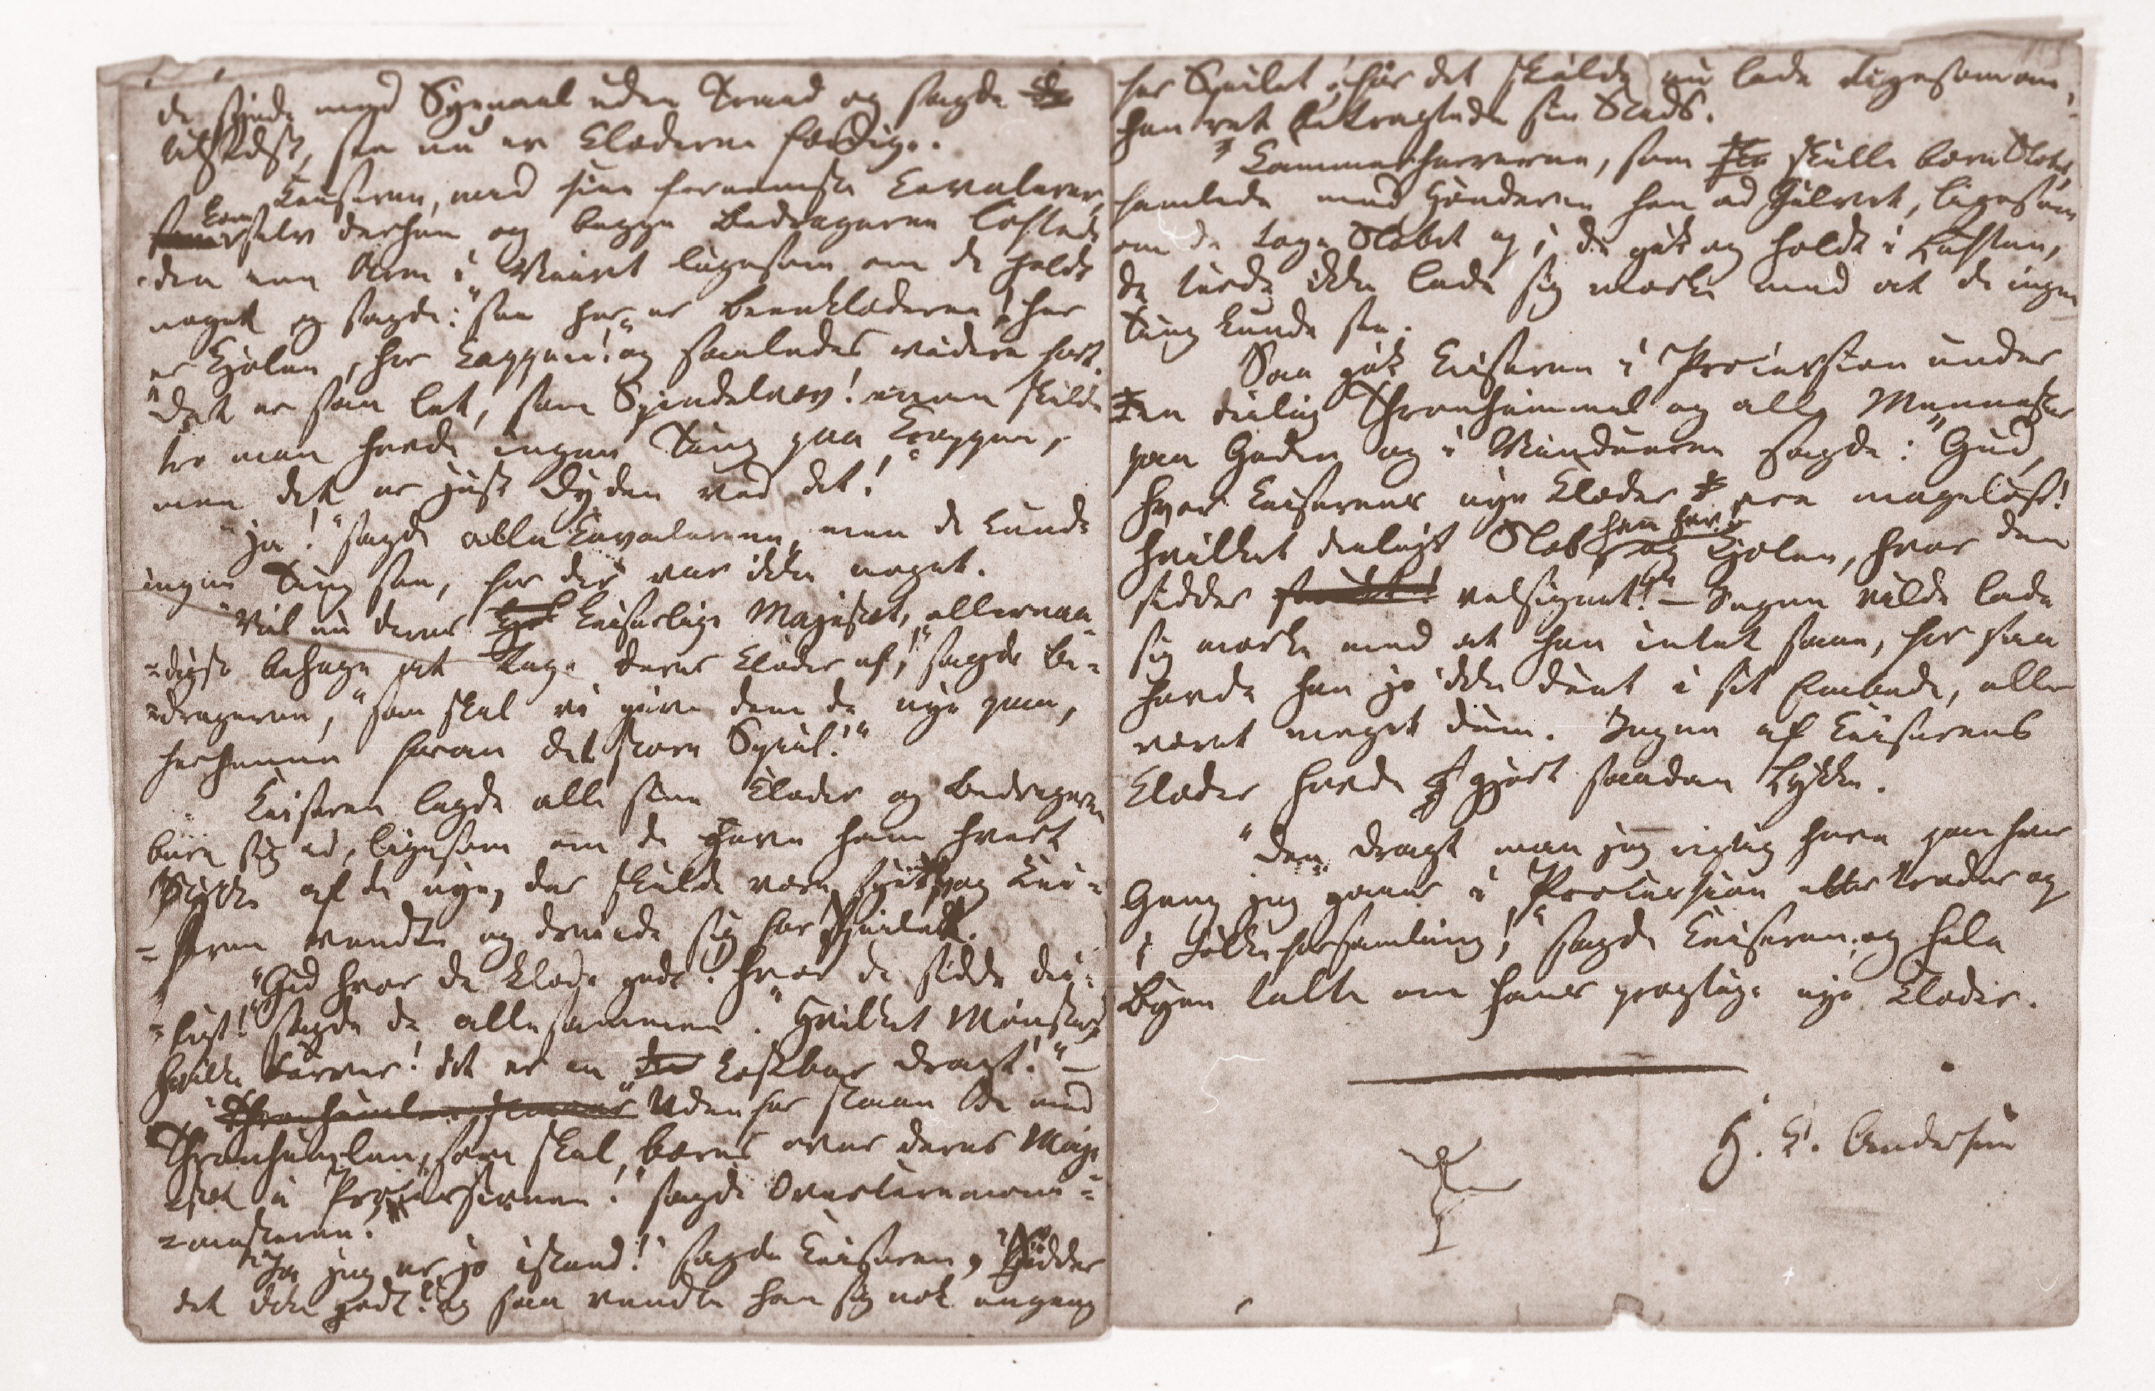 de syede med Syenaal uden Traad og sagde
tilsidst, see nu er Klæderne færdige.
Keiseren, med sine fornemste Cavalerer,
kom selv derhen og begge Bedragerne løftede
den ene Arm i Veiret ligesom om de holdt
noget og sagde: "see her er Beenklæderne! her
er Kjolen, her Kappen!" og saaledes videre fort.
"Det er saa let, som Spindelvæv! man skulde
troe man havde ingen Ting paa Kroppen,
men det er just Dyden ved det!
"ja!" sagde alle Cavalererne, men de kunde
ingen Ting see, for der var ikke noget.
"Vil nu deres keiserlige Majestæt, allernaa-
-digst behage at tage deres Klæder af," sagde Be-
-dragerne, "saa skal vi give dem de nye paa,
herhenne foran det store Speil!"
Keiseren lagde alle sine Klæder og Bedragerne
bare sig ad, ligesom om de gave ham hvert
Stykke af de nye, der skulde være syet, og Kei-
-seren vendte og dreiede sig for Speilet.
"Gud hvor de klæde godt! hvor de sidde dei-
-ligt!" sagde de allesammen. "Hvilket Mønster,
hvilke Farver! det er en kostbar Dragt!" –
"Udenfor staae de med
Thronhimlen, som skal bæres over deres Maje-
-stæt i Processionen!" sagde Overceremoni-
-mesteren.
"Ja jeg er jo istand!" sagde Keiseren, "Sidder
det ikke godt?" og saa vendte han sig nok engang
for Speilet; for det skulde nu lade ligesom om
han ret betragtede sin Stads.
Kammerherrerne, som skulle bære Slæbet,
famlede med Hænderne hen ad Gulvet, ligesom
om de toge Slæbet op; de gik og holdt i Luften,
de turde ikke lade sig mærke med at de ingen
Ting kunde see.
Saa gik Keiseren i Procession under
den deilige Thronhimmel og alle Mennesker
paa Gaden og i Vinduerne sagde: "Gud,
hvor Keiserens nye Klæder ere mageløse!
hvilket deiligt Slæb han har paa Kjolen, hvor den
sidder velsignet!" – Ingen vilde lade
sig mærke med at han intet saae, for saa
havde han jo ikke duet i sit Embede, eller
været meget dum. Ingen af Keiserens
Klæder havde gjort saadan Lykke.
"Den Dragt maa jeg rigtig have paa hver
Gang jeg gaaer i Procession eller træder op
i Folkeforsamling!" sagde Keiseren, og hele
Byen talte om hans prægtige nye Klæder.
H. C. Andersen